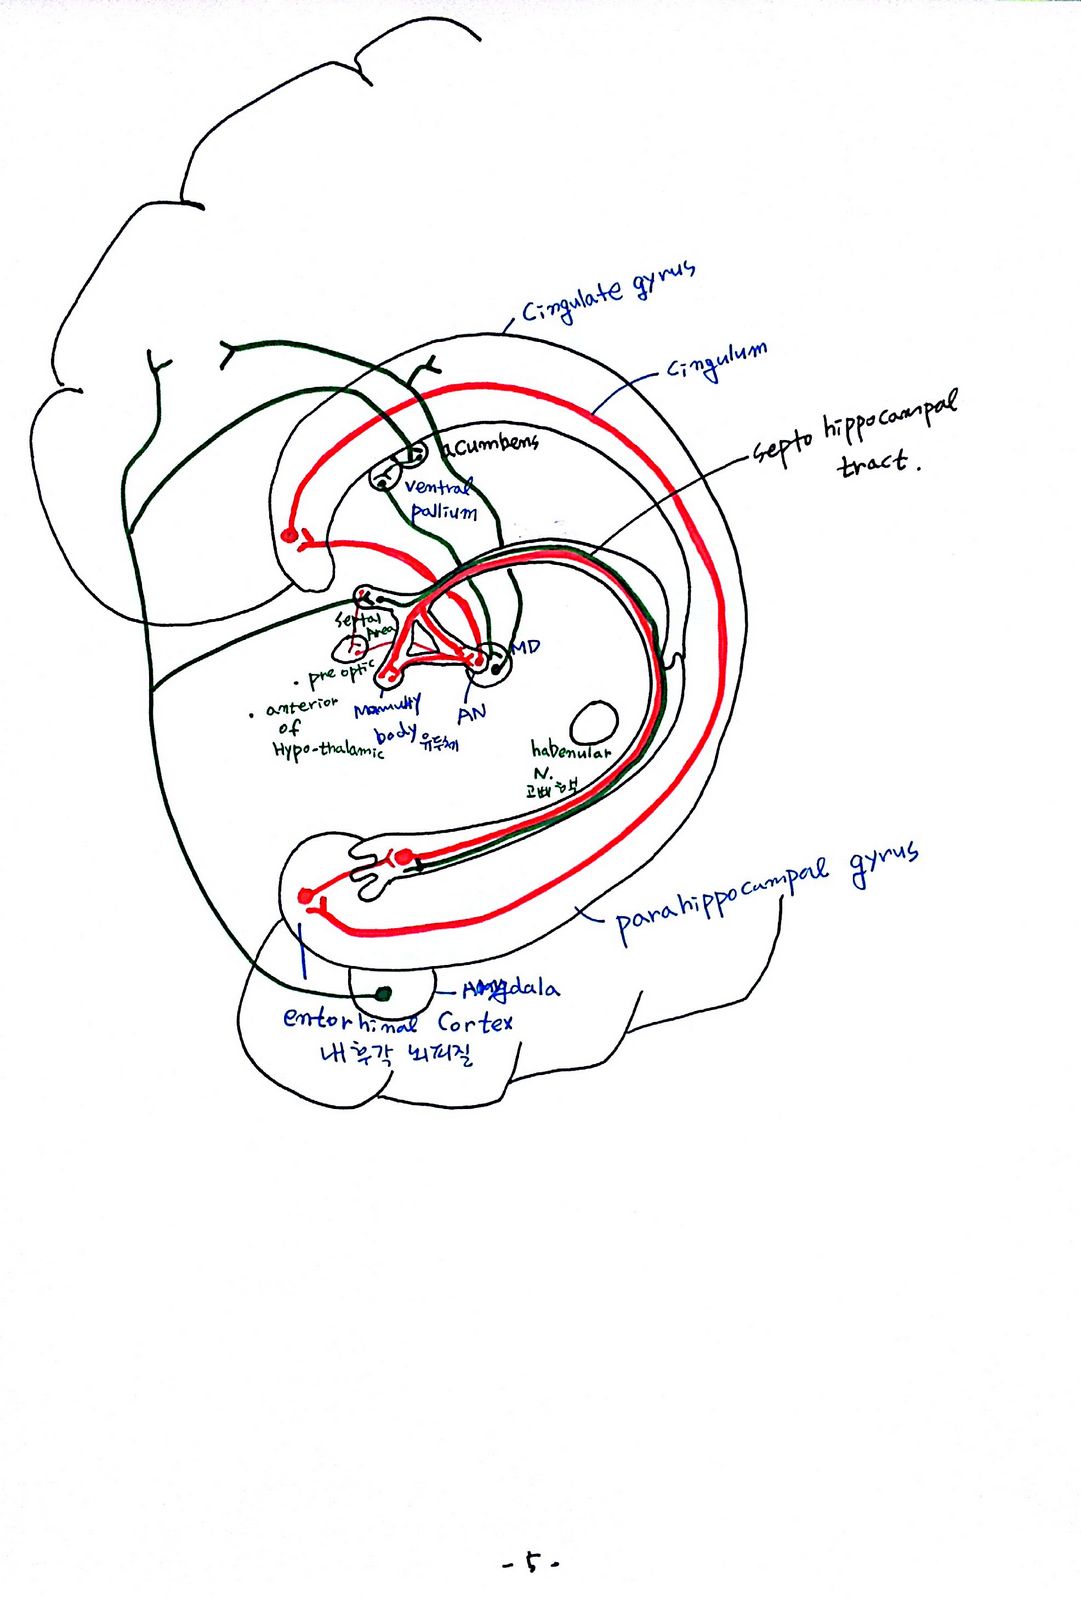 Cingulate gyrus
Cingulum
septo hippocampal
tract.
acumbens
ventral
pallium
septal
Area
MD
· pre optic
· anterior
of
Hypo-thalamic
AN
body 유두체
habenular
N.
고삐핵
parahippocampal gyrus
entorhinal Cortex
내후각 뇌피질
- 5 -